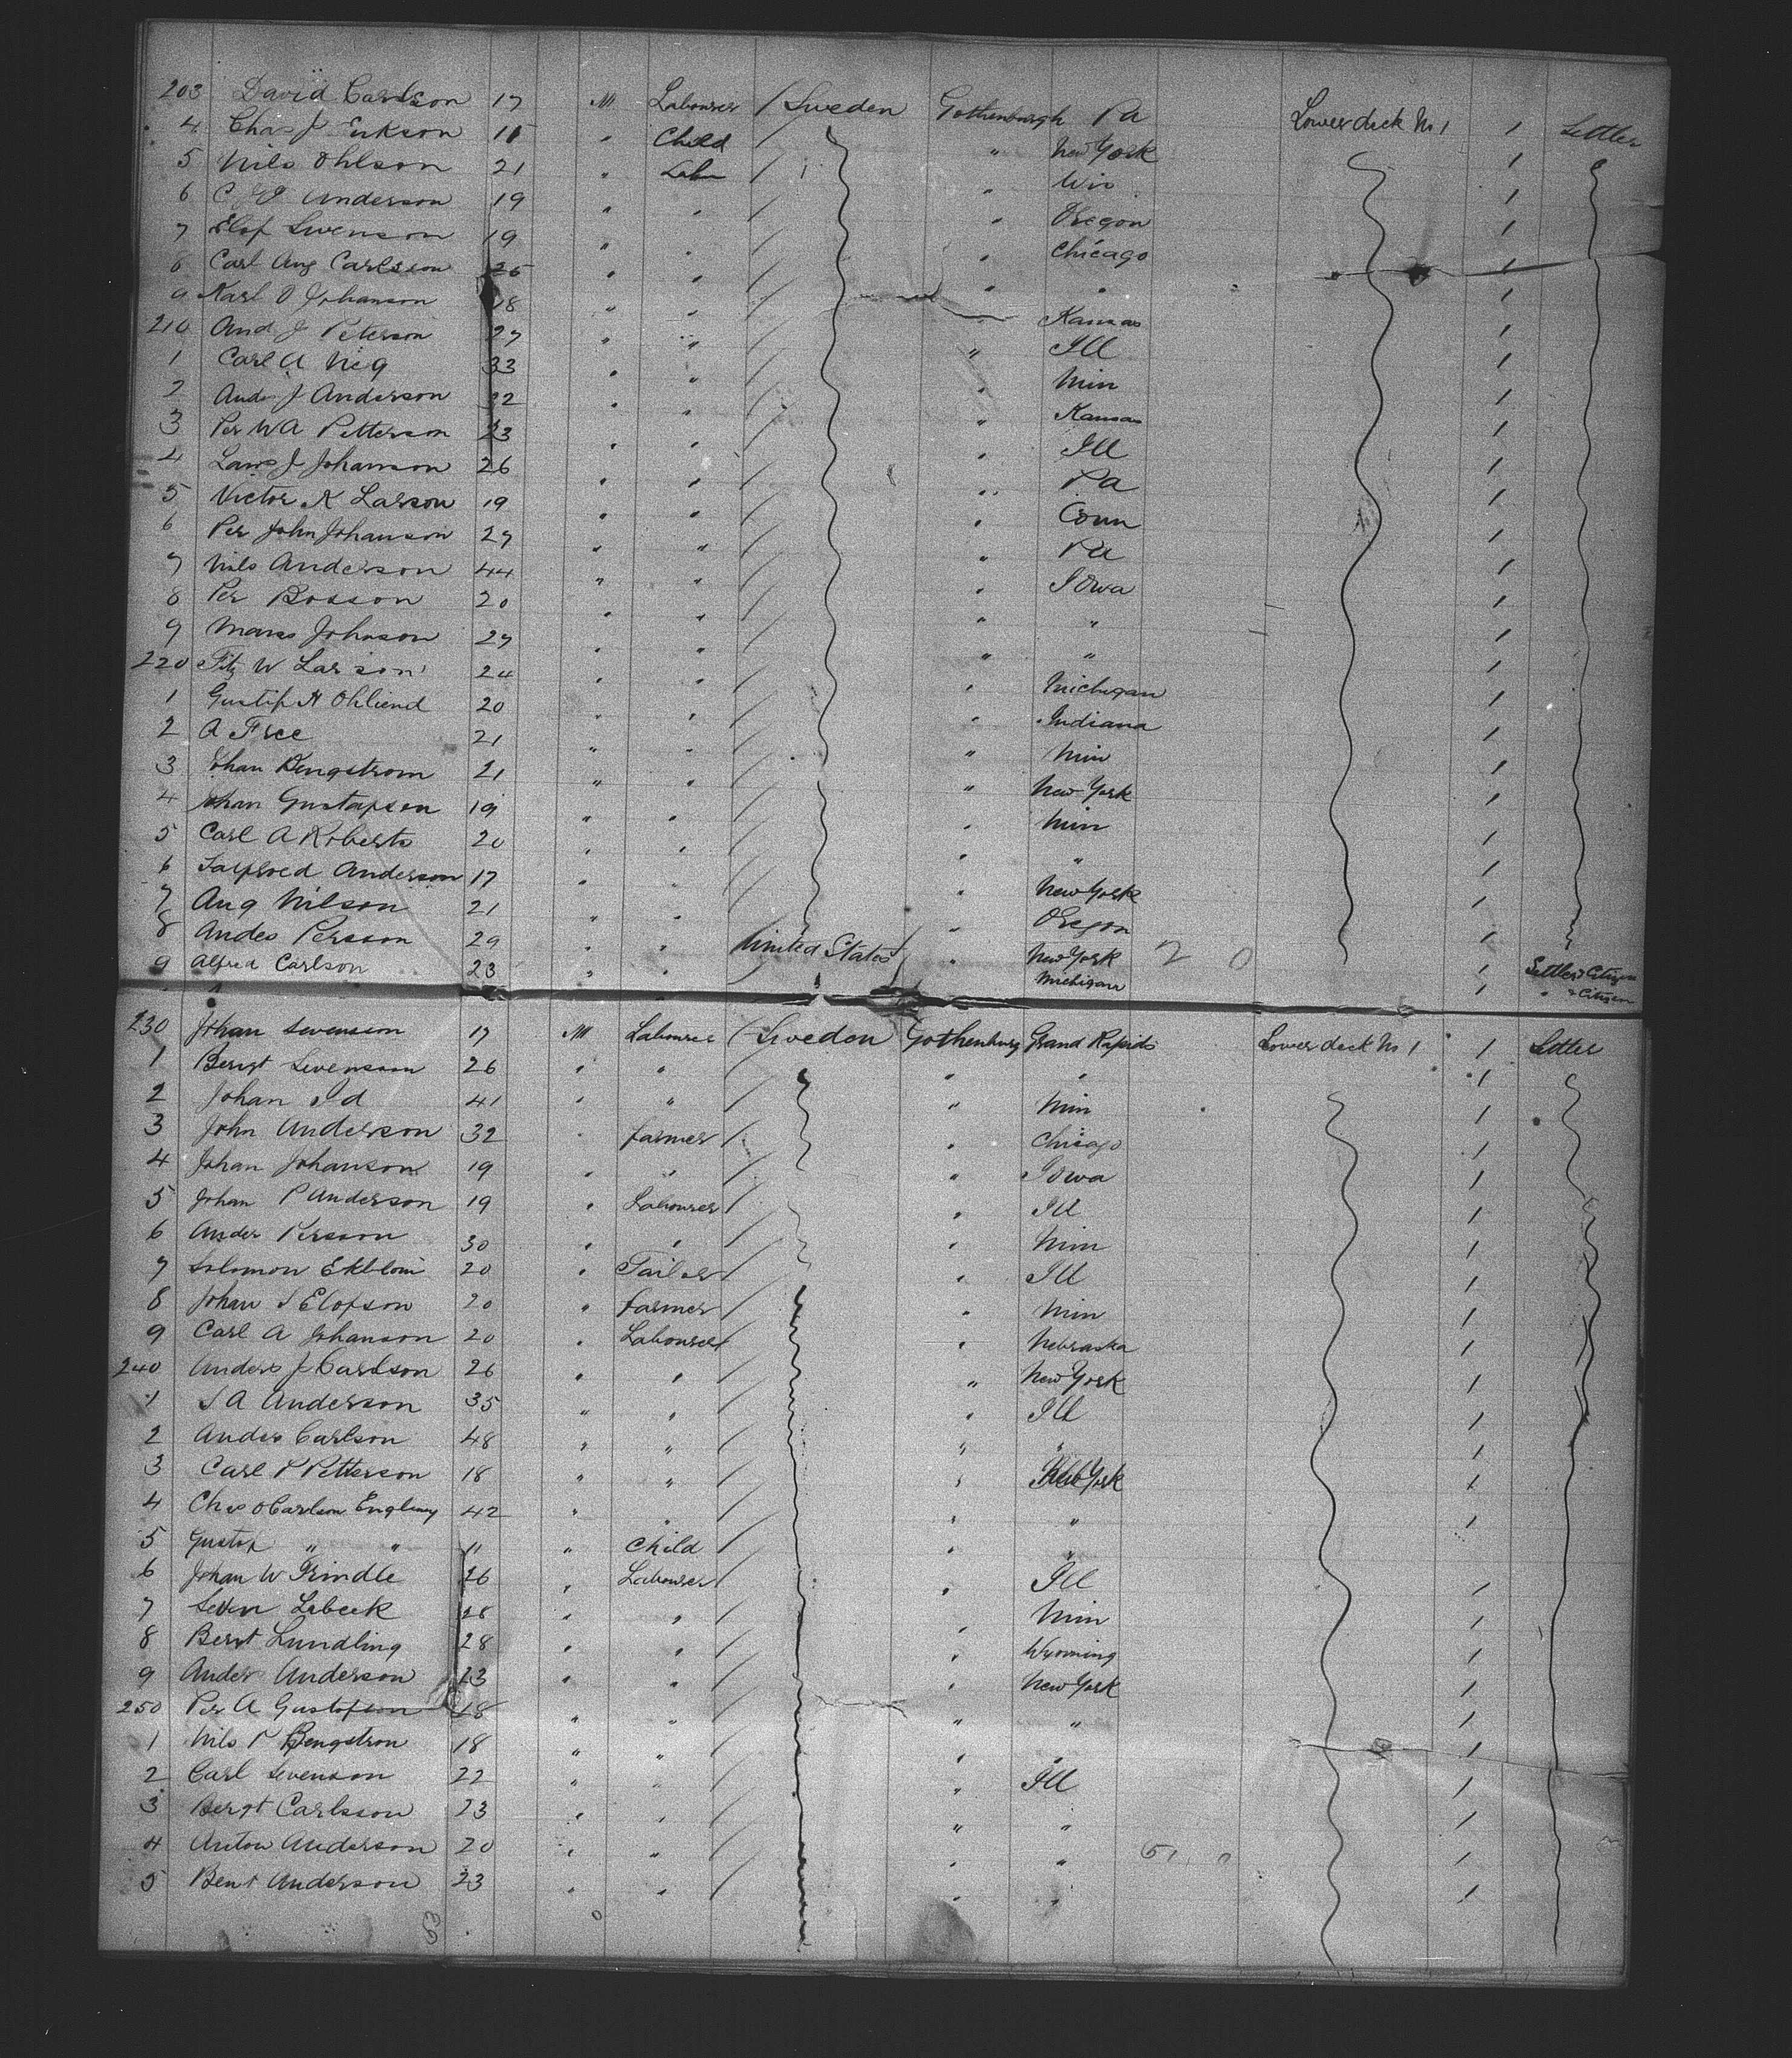 203 David Carlson 17 M Labourer / Sweden Gothenburgh Pa Lower deck No 1 1 Settler
4 Chas J Erikson 11 " Child / " New York 1
5 Nils Ohlson 21 " Labr / " Wis 1
6 Anderson 19 " " / " Oregon 1
7 Elof Swenson 19 " " / " Chicago 1
8 Carl Aug Carlsson 25 " " / " " 1
9 Karl O Johanson 18 " " / " Kansas 1
210 And J Peterson 27 " " / " Ill 1
1 Carl A 33 " " / " Min 1
2 Anders J Anderson 22 " " / " Kansas 1
3 Per W A Petterson 23 " " / " Ill 1
4 Lars J Johanson 26 " " / " Pa 1
5 Victor K Larson 19 " " / " Conn 1
6 Per John Johanson 27 " " / " Pa 1
7 Nils Anderson 44 " " / " Iowa 1
8 Per Bosson 20 " " / " " 1
9 Mans Johnson 27 " " / " " 1
220 W Larson 24 " " / " Michigan 1
1 Gustif A Ohliend 20 " " / " Indiana 1
2 A Free 21 " " / " Min 1
3 Johan Bengstrom 21 " " / " New York 1
4 Johan Gustafson 19 " " / " Min 1
5 Carl A Roberts 20 " " / " " 1
6 Anderson 17 " " / " New York 1
7 Aug Nilson 21 " " / " Oregon 1
8 Andes Persson 29 " " United States " New York 2 0 1 Settler & Citizen
9 Alfred Carlson 23 " " / " Michigan 1 " & Citizen
230 Johan Svenson 17 M Labourer / Sweden Gothenburg Grand Rapids Lower deck No 1 1 Settler
1 Bengt Svenson 26 " " / " " 1
2 Johan Id 41 " " / " Min 1
3 John Anderson 32 " Farmer / " Chicago 1
4 Johan Johanson 19 " " / " Iowa 1
5 Johan P Anderson 19 " Labourer / " Ill 1
6 Ander Persson 30 " " / " Min 1
7 Solomon Ekblom 20 " Tailor / " Ill 1
8 Johan S Elofson 20 " Farmer / " Min 1
9 Carl A Johanson 20 " Labourer / " Nebraska 1
240 Anders J Carlson 26 " " / " New York 1
1 S A Anderson 35 " " / " Ill 1
2 Andes Carlson 48 " " / " " 1
3 Carl P Petterson 18 " " / " New York 1
4 Chas O Carlson 42 " " / " " 1
5 Gustof " " 11 " Child / " "
6 Johan W Trindle 26 " Labourer / " Ill 1
7 Labeck 28 " " / " Min 1
8 Bernt Lundling 28 " " / " Wyoming 1
9 Ander Anderson 23 " " / " New York 1
250 Per A Gustafson 18 " " / " " 1
1 Nils P Bengstron 18 " " / " " 1
2 Carl Svenson 22 " " / " Ill 1
3 Bengt Carlsson 23 " " / " " 1
4 Anton Anderson 20 " " / " " 51 0 1
5 Bent Anderson 23 " " / " " 1